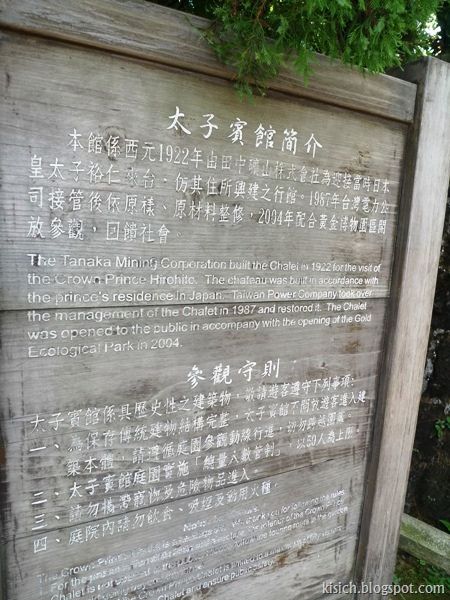 太子賓館簡介
本館係西元1922年由田中礦山株式會社為迎接當時日本
皇太子裕仁來台，仿其住所興建之行館。1987年台灣電力公
司接管後依原樣、原材料整修，2004年配合黃金博物園區開
放參觀，回歸社會。
The Tanaka Mining Corporation built the Chalet in 1922 for the visit of
the Crown Prince Hirohito. The chateau was built in accordance with
the prince's residence in Japan. Taiwan Power Company took over
the management of the Chalet in 1987 and restored it. The Chalet
was opened to the public in accompany with the opening of the Gold
Ecological Park in 2004.
參觀守則：
太子賓館係具歷史性之建築物，敬請遊客遵守下列事項：
一、為保存傳統建物結構完整，太子賓館不開放遊客進入建
築本體，請遵循庭園參觀動線行進，切勿跨越圍籬。
二、太子賓館庭園實施「總量人數管制」，以50人為上限。
三、請勿攜帶寵物及危險物品進入。
四、庭院內請勿飲食、吸煙及使用火種。
kisich.blogspot.com